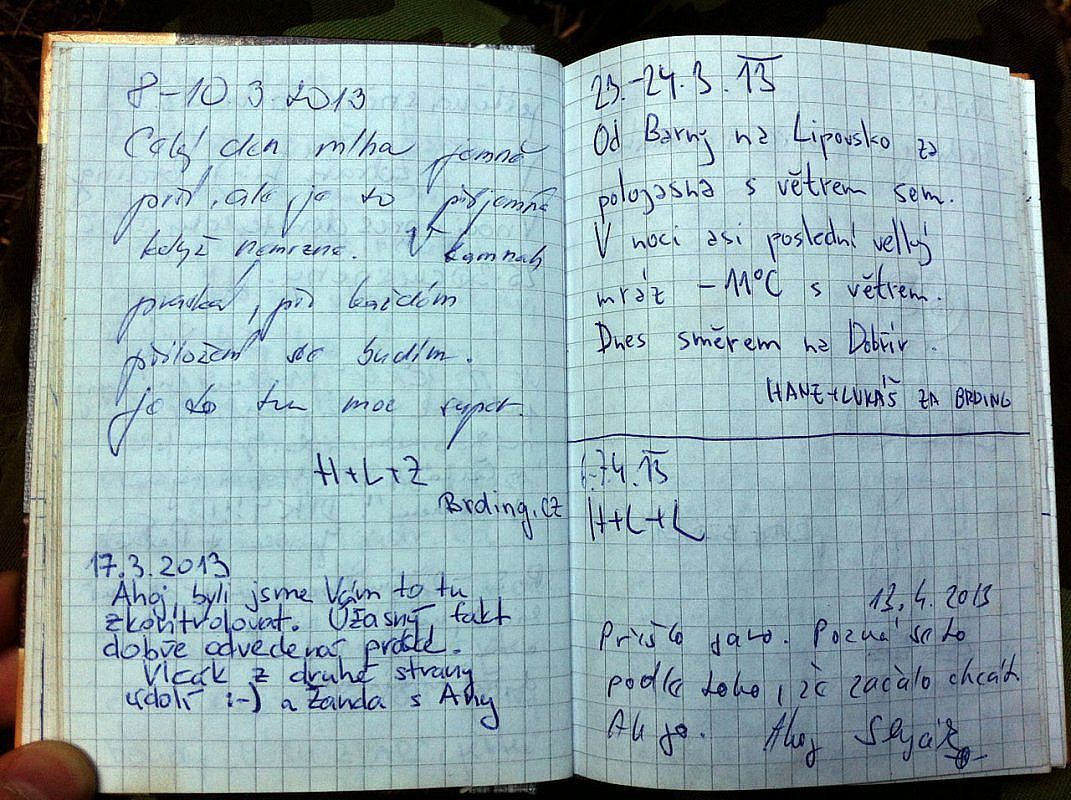 8-10.3.2013
Celý den mlha jemně
prší, ale je to příjemné
když nemrzne. V kamnah
praská, při každém
přiložení se budím.
je to tu moc super.
H+L+Z
Brding.cz
17.3.2013
Ahoj, byli jsme Vám to tu
zkontrolovat. Úžasný fakt
dobře odvedená práce.
Vlčák z druhé strany
údolí :-) a Žanda s Amy
23.-24.3.13
Od Barny na Lipovsko za
polojasna s větrem sem.
V noci asi poslední velký
mráz -11°C s větrem.
Dnes směrem na Dobřív.
HANZ+LUKÁŠ ZA BRDING
6-7.4.13
H+L+L
13.4.2013
Přišlo jaro. Pozná se to
podle toho, že začalo chcát.
Ah jo. Ahoj